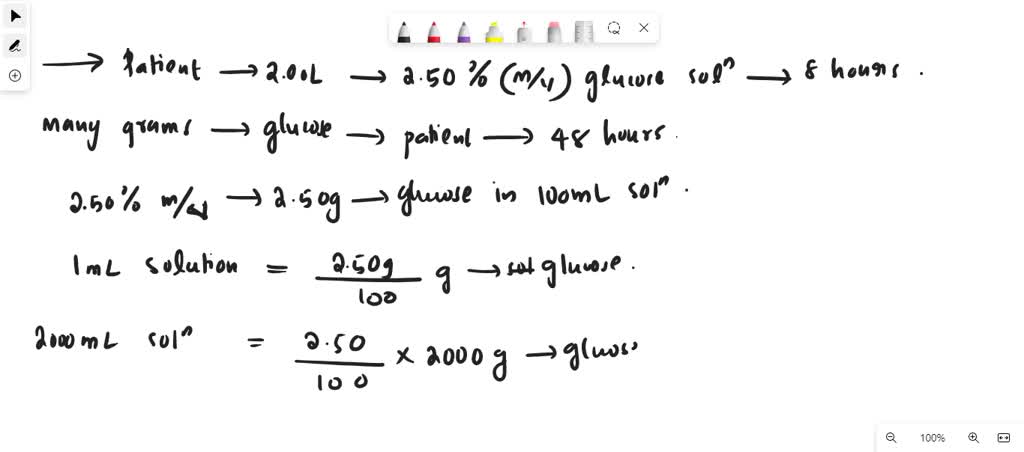 → Patient → 2.00L → 2.50 % (m/v) glucose solⁿ → 8 hours.
many grams → glucose → patient → 48 hours.
2.50% m/v → 2.50g → glucose in 100mL solⁿ.
1mL solution = 2.50g/100 g → glucose.
2000mL solⁿ = 2.50/100 × 2000 g → glucos
100%